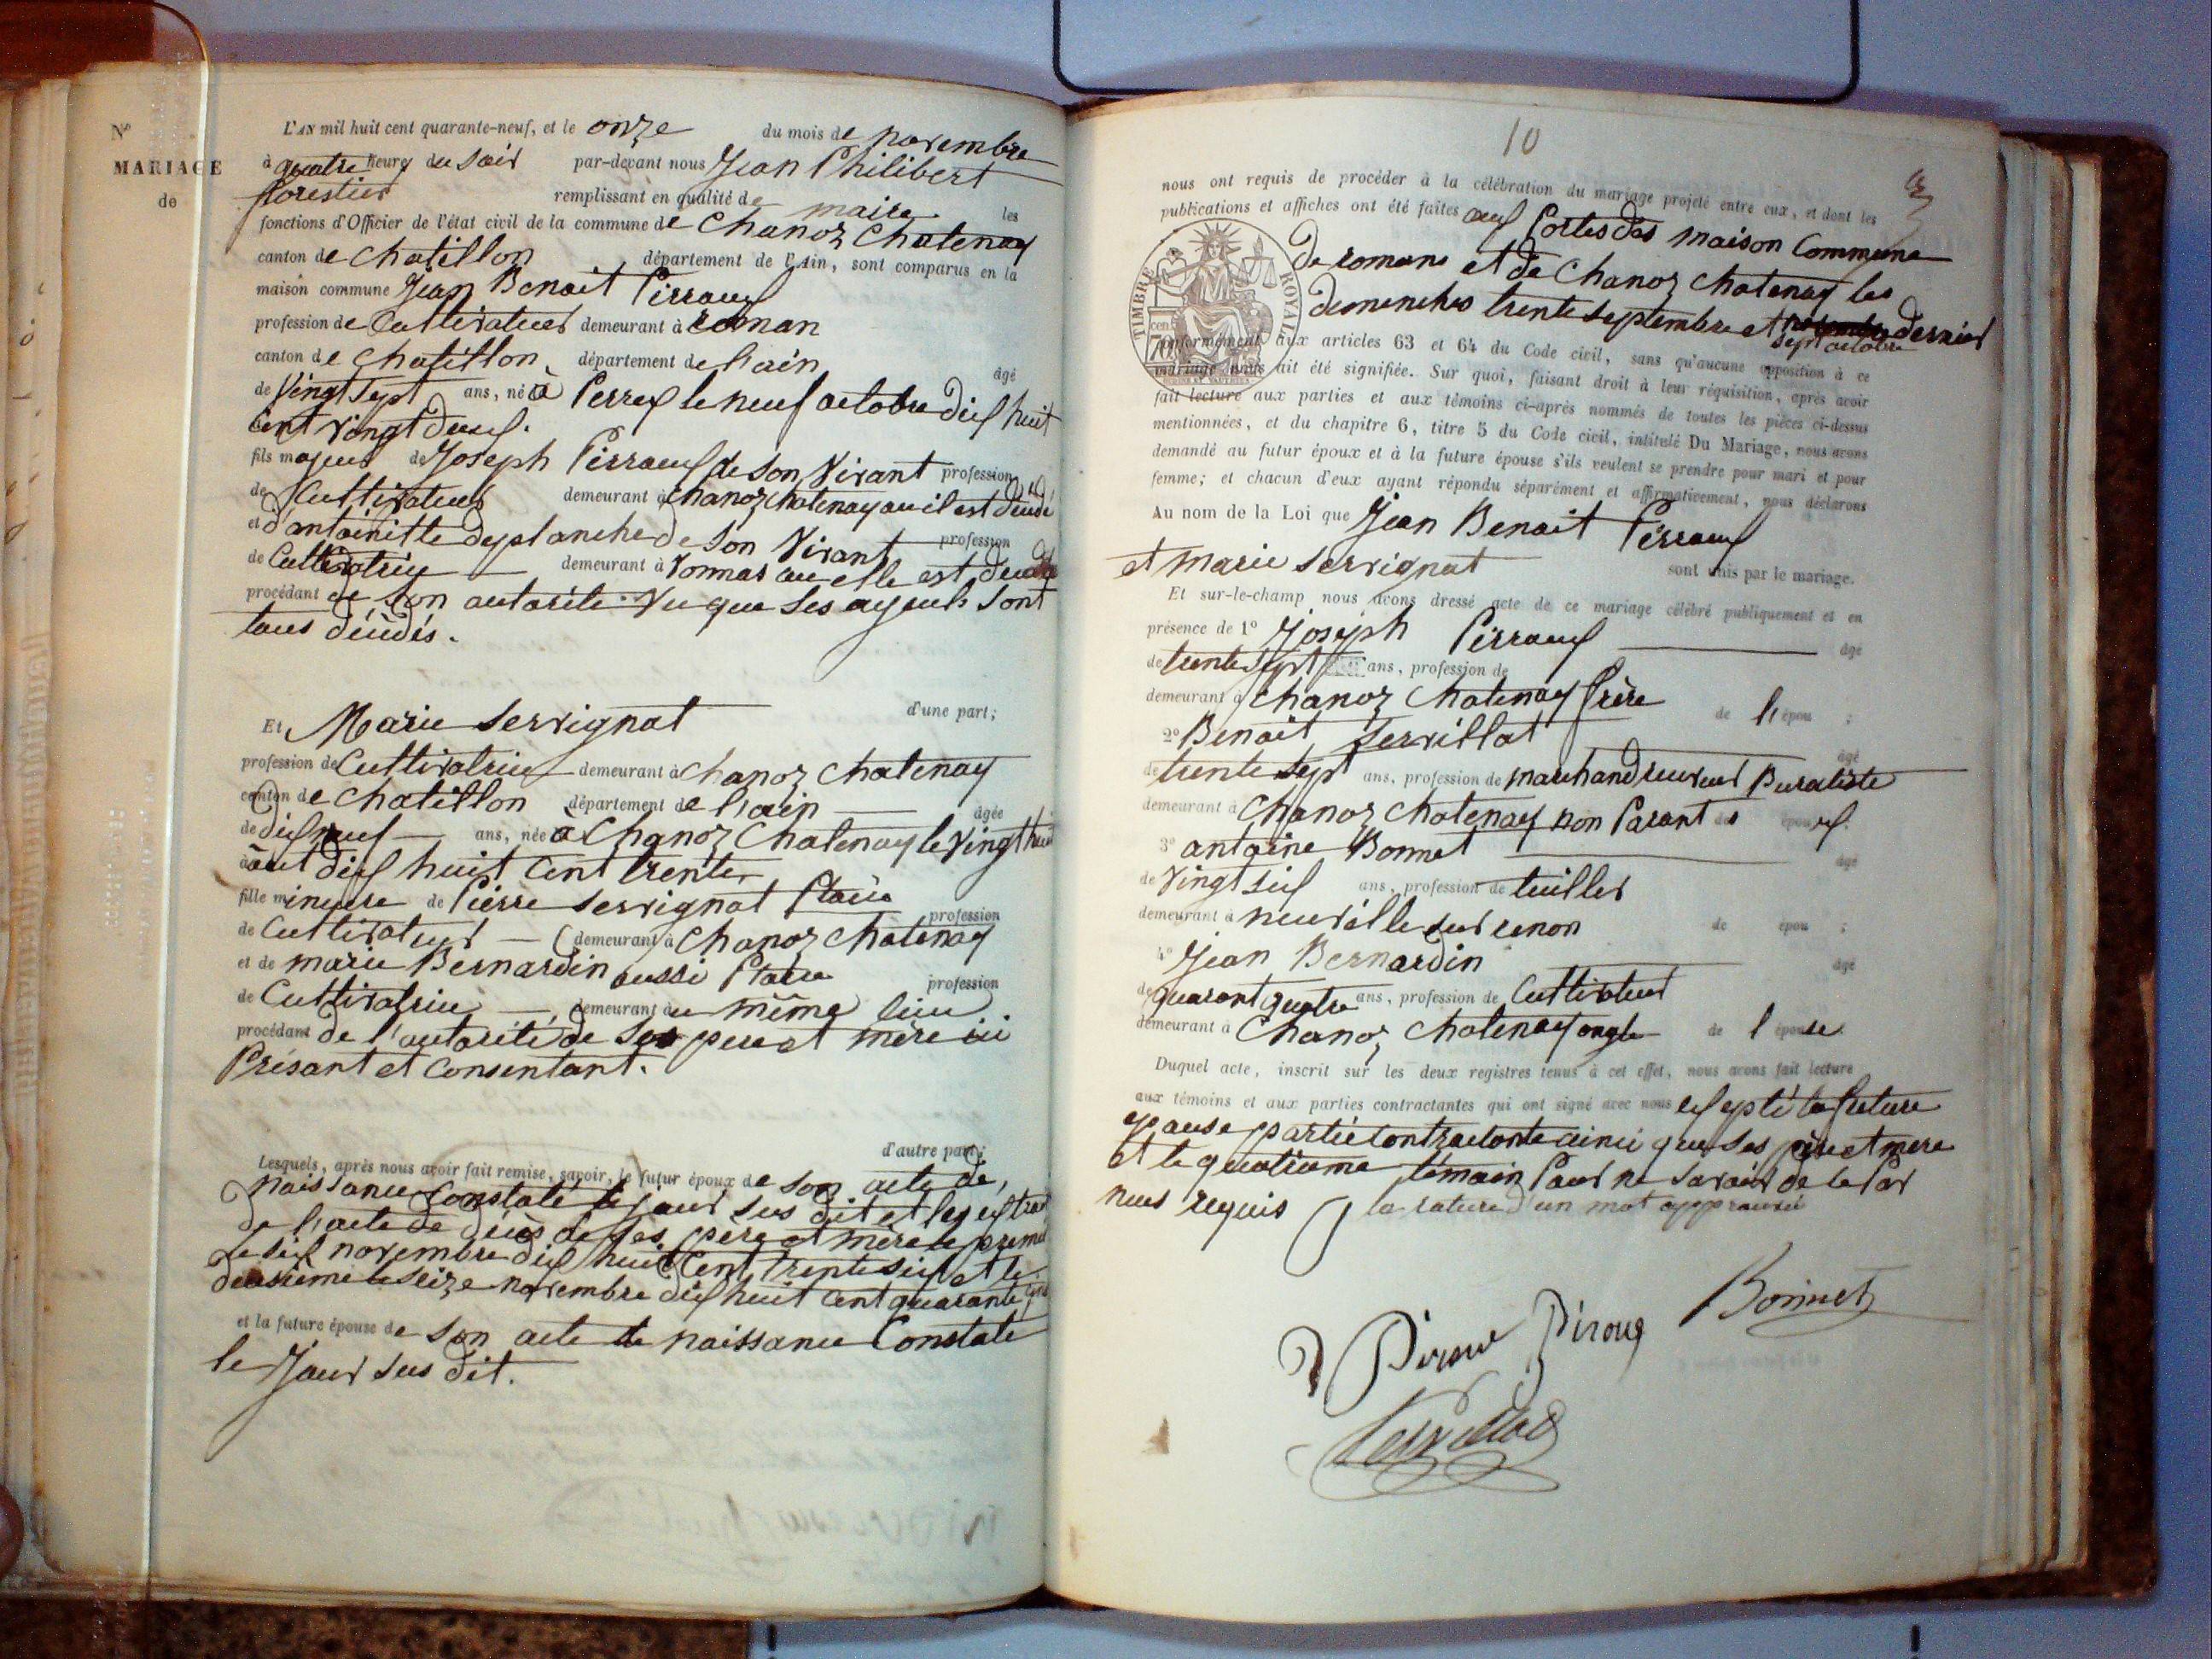 N°
MARIAGE
de
L'AN mil huit cent quarante-neuf, et le onze du mois de novembre
à quatre heures du soir par-devant nous Jean Philibert
florestier remplissant en qualité de maire les
fonctions d'Officier de l'état civil de la commune de Chanoz Chatenay
canton de Chatillon département de l'Ain, sont comparus en la
maison commune Jean Benoit Perraux
profession de Cultivateur demeurant à roman
canton de Chatillon département de l'ain âgé
de Vingt sept ans, né à Perrex le neuf octobre dix huit
Cent vingt deux.
fils majeur de Joseph Perraux de son Vivant profession
de Cultivateur demeurant à Chanoz Chatenay ou il est dédé
et d'antoinette deplanche de son Vivant profession
de Cultivatrice demeurant à Vonnas ou elle est dédé
procédant de son autorité. Vu que ses ayeuls sont
tous dédés.
d'une part;
Et Marie Servignat
profession de Cultivatrice demeurant à Chanoz Chatenay
canton de Chatillon département de l'ain âgée
de dix neuf ans, née à Chanoz Chatenay le Vingt huit
aout dix huit Cent trente
fille mineure de Pierre Servignat profession
de Cultivateur demeurant à Chanoz Chatenay
et de marie Bernardin aussi profession
de Cultivatrice demeurant au même lieu
procédant de l'autorité de Ses pere et mère ici
Présant et Consentant.
d'autre part;
Lesquels, après nous avoir fait remise, savoir, le futur époux de son acte de
naissance Constaté le jour sus dit et les extrai
de l'acte de de ses père et mère le premie
le six novembre dix huit Cent trente six et le
deusième le seize novembre dix huit cent quarante
et la future épouse de son acte de naissance Constaté
le Jour sus dit.
10
nous ont requis de procéder à la célébration du mariage projeté entre eux, et dont les
publications et affiches ont été faites aux Portes des maison Commune
de romans et de Chanoz Chatenay les
dimenches trente septembre et novembre dernier
sept octobre
TIMBRE ROYAL
70 cen
conformément aux articles 63 et 64 du Code civil, sans qu'aucune opposition à ce
mariage nous ait été signifiée. Sur quoi, faisant droit à leur réquisition, après avoir
fait lecture aux parties et aux témoins ci-après nommés de toutes les pièces ci-dessus
mentionnées, et du chapitre 6, titre 5 du Code civil, intitulé Du Mariage, nous avons
demandé au futur époux et à la future épouse s'ils veulent se prendre pour mari et pour
femme; et chacun d'eux ayant répondu séparément et affirmativement, nous déclarons
Au nom de la Loi que Jean Benoit Perraux
et Marie servignat sont unis par le mariage.
Et sur-le-champ nous avons dressé acte de ce mariage célébré publiquement et en
présence de 1° Joseph Perraux âgé
de trente sept ans, profession de
demeurant à Chanoz Chatenay frère de l'épou ;
2° Benoit Servillat âgé
de trente sept ans, profession de marchand Buraliste
demeurant à Chanoz Chatenay non Parant des epoux.
3° antoine Bonnet âgé
de Vingt six ans, profession de tuillier
demeurant à neuville sur renon de épou ;
4° Jean Bernardin âgé
de quarant quatre ans, profession de Cultivateur
demeurant à Chanoz Chatenay oncle de l'épouse.
Duquel acte, inscrit sur les deux registres tenus à cet effet, nous avons fait lecture
aux témoins et aux parties contractantes qui ont signé avec nous exepté la future
epouse partie Contractante ainci que ses père et mere
et le quatrieme témoin Pour ne savoir de le Par
nous requis la rature d'un mot approuvé
Bonnet
Piroux Piroug
Servillat